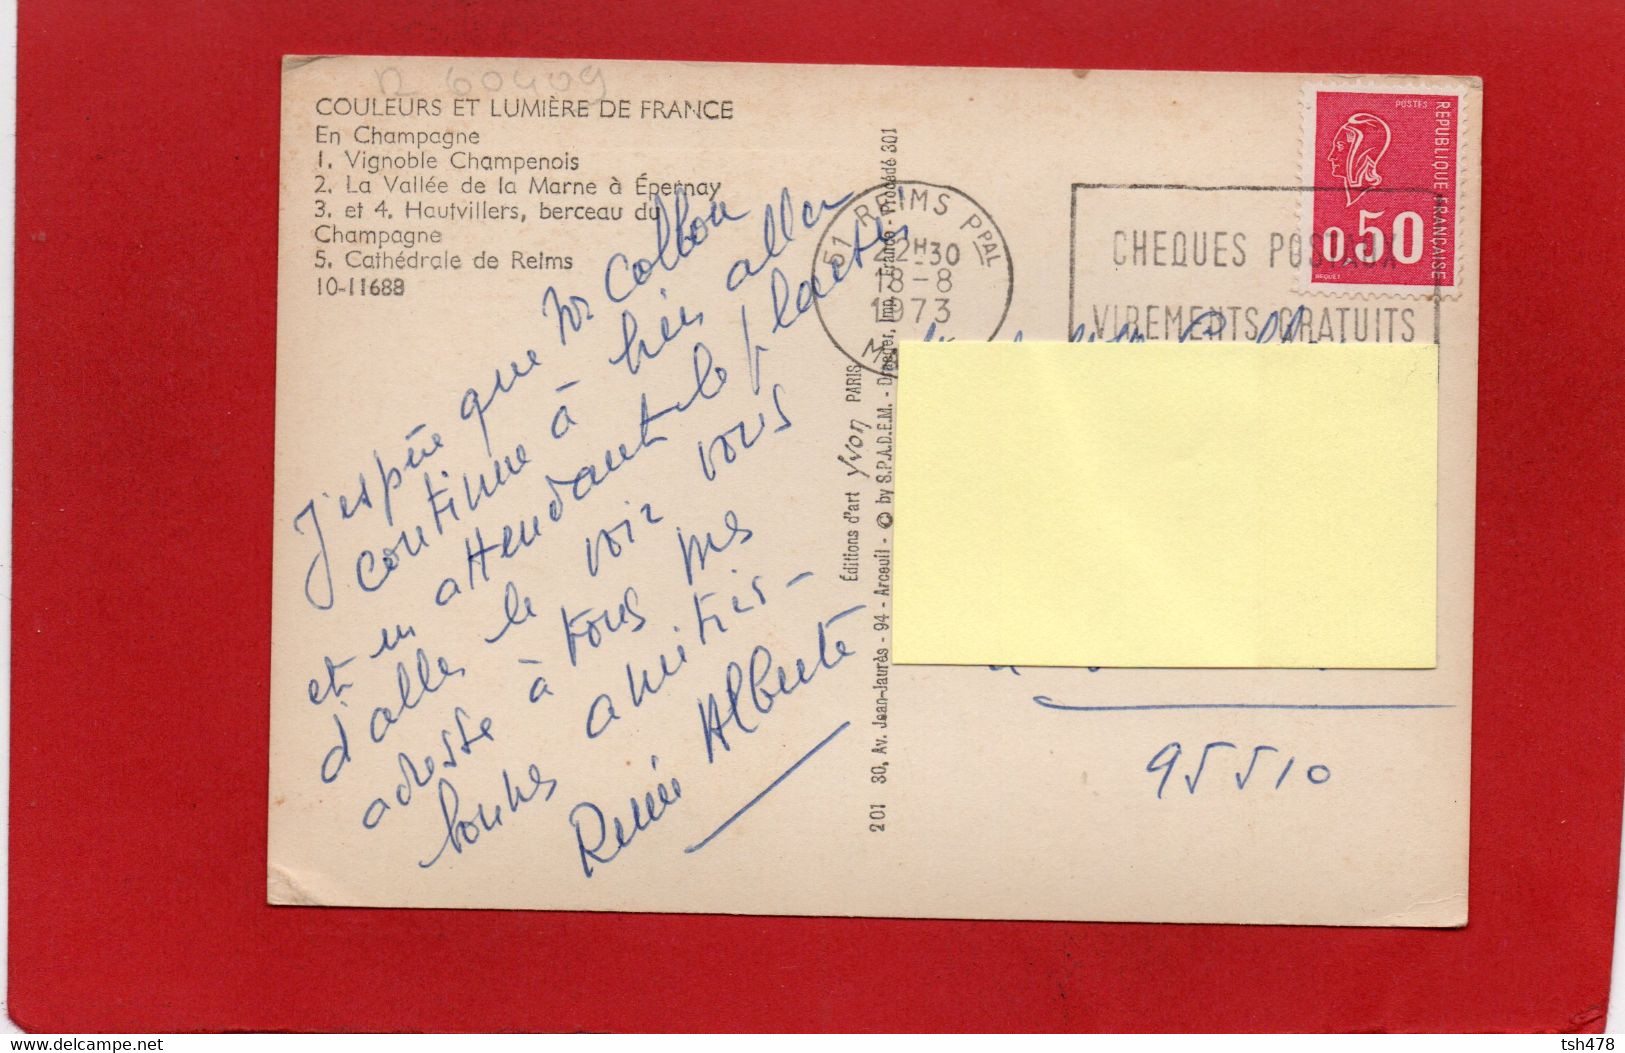 R 60409
COULEURS ET LUMIÈRE DE FRANCE
En Champagne
1. Vignoble Champenois
2. La Vallée de la Marne à Épernay
3. et 4. Hautvillers, berceau du
Champagne
5. Cathédrale de Reims
10-11688
J'espère que Mr
continue à bien aller
et en attendant le plaisir
d'aller le voir vous
adresse à tous mes
bonnes amitiés -
Renée Alberte
Éditions d'art Yvon PARIS
201 30, Av. Jean-Jaurès - 94 - Arcueil - © by S.P.A.D.E.M. - Draeger, Imp. France - Procédé 301
51 REIMS PPAL
22H30
18-8
1973
CHEQUES POSTAUX
VIREMENTS GRATUITS
POSTES
RÉPUBLIQUE FRANÇAISE
0,50
BEQUET
95510
delcampe.net
tsh478